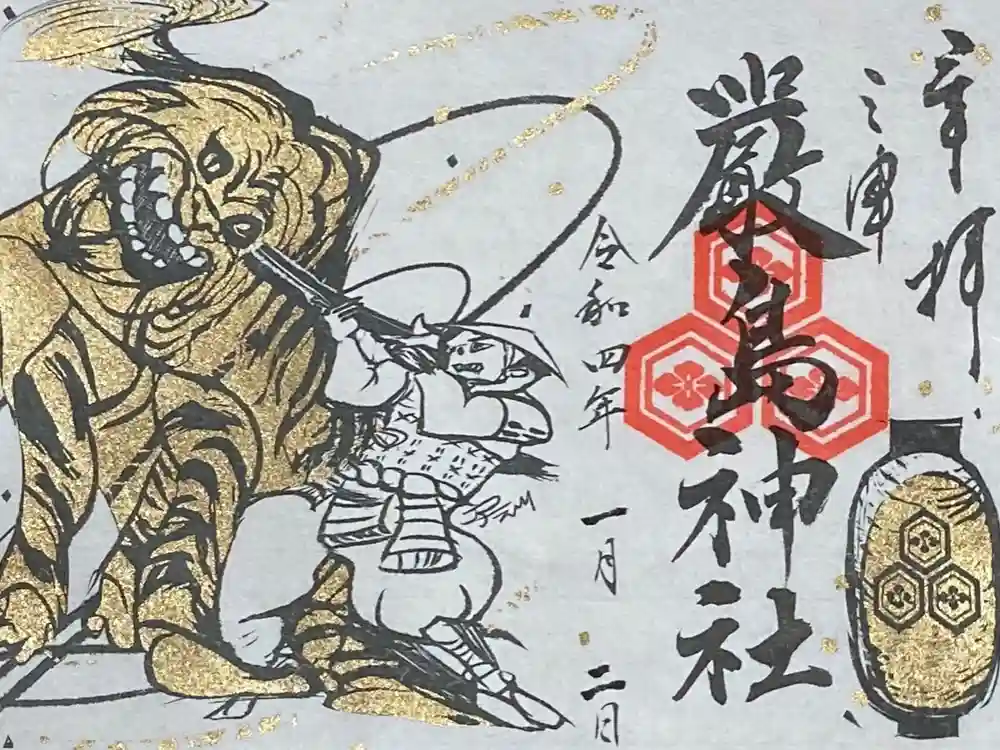 奉拝
之津
嚴島神社
令和四年 一月 二月